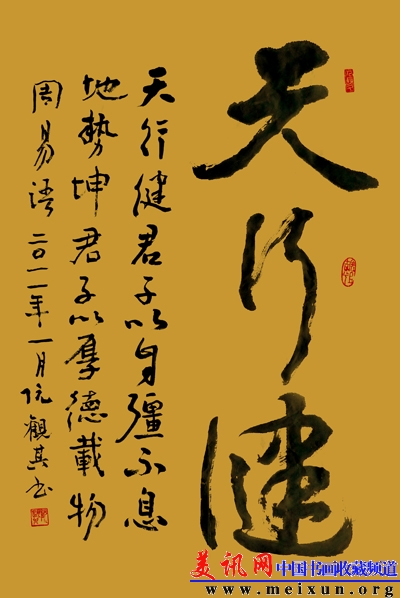 天行健
天行健君子以自彊不息
地勢坤君子以厚德載物
周易语二〇一一年一月阮觀其书
美讯网 中国书画收藏频道
www.meixun.org